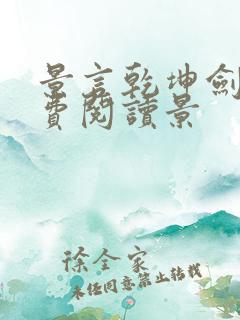 景言乾坤劍
費閱讀景
徐全家
未經同意禁止转载